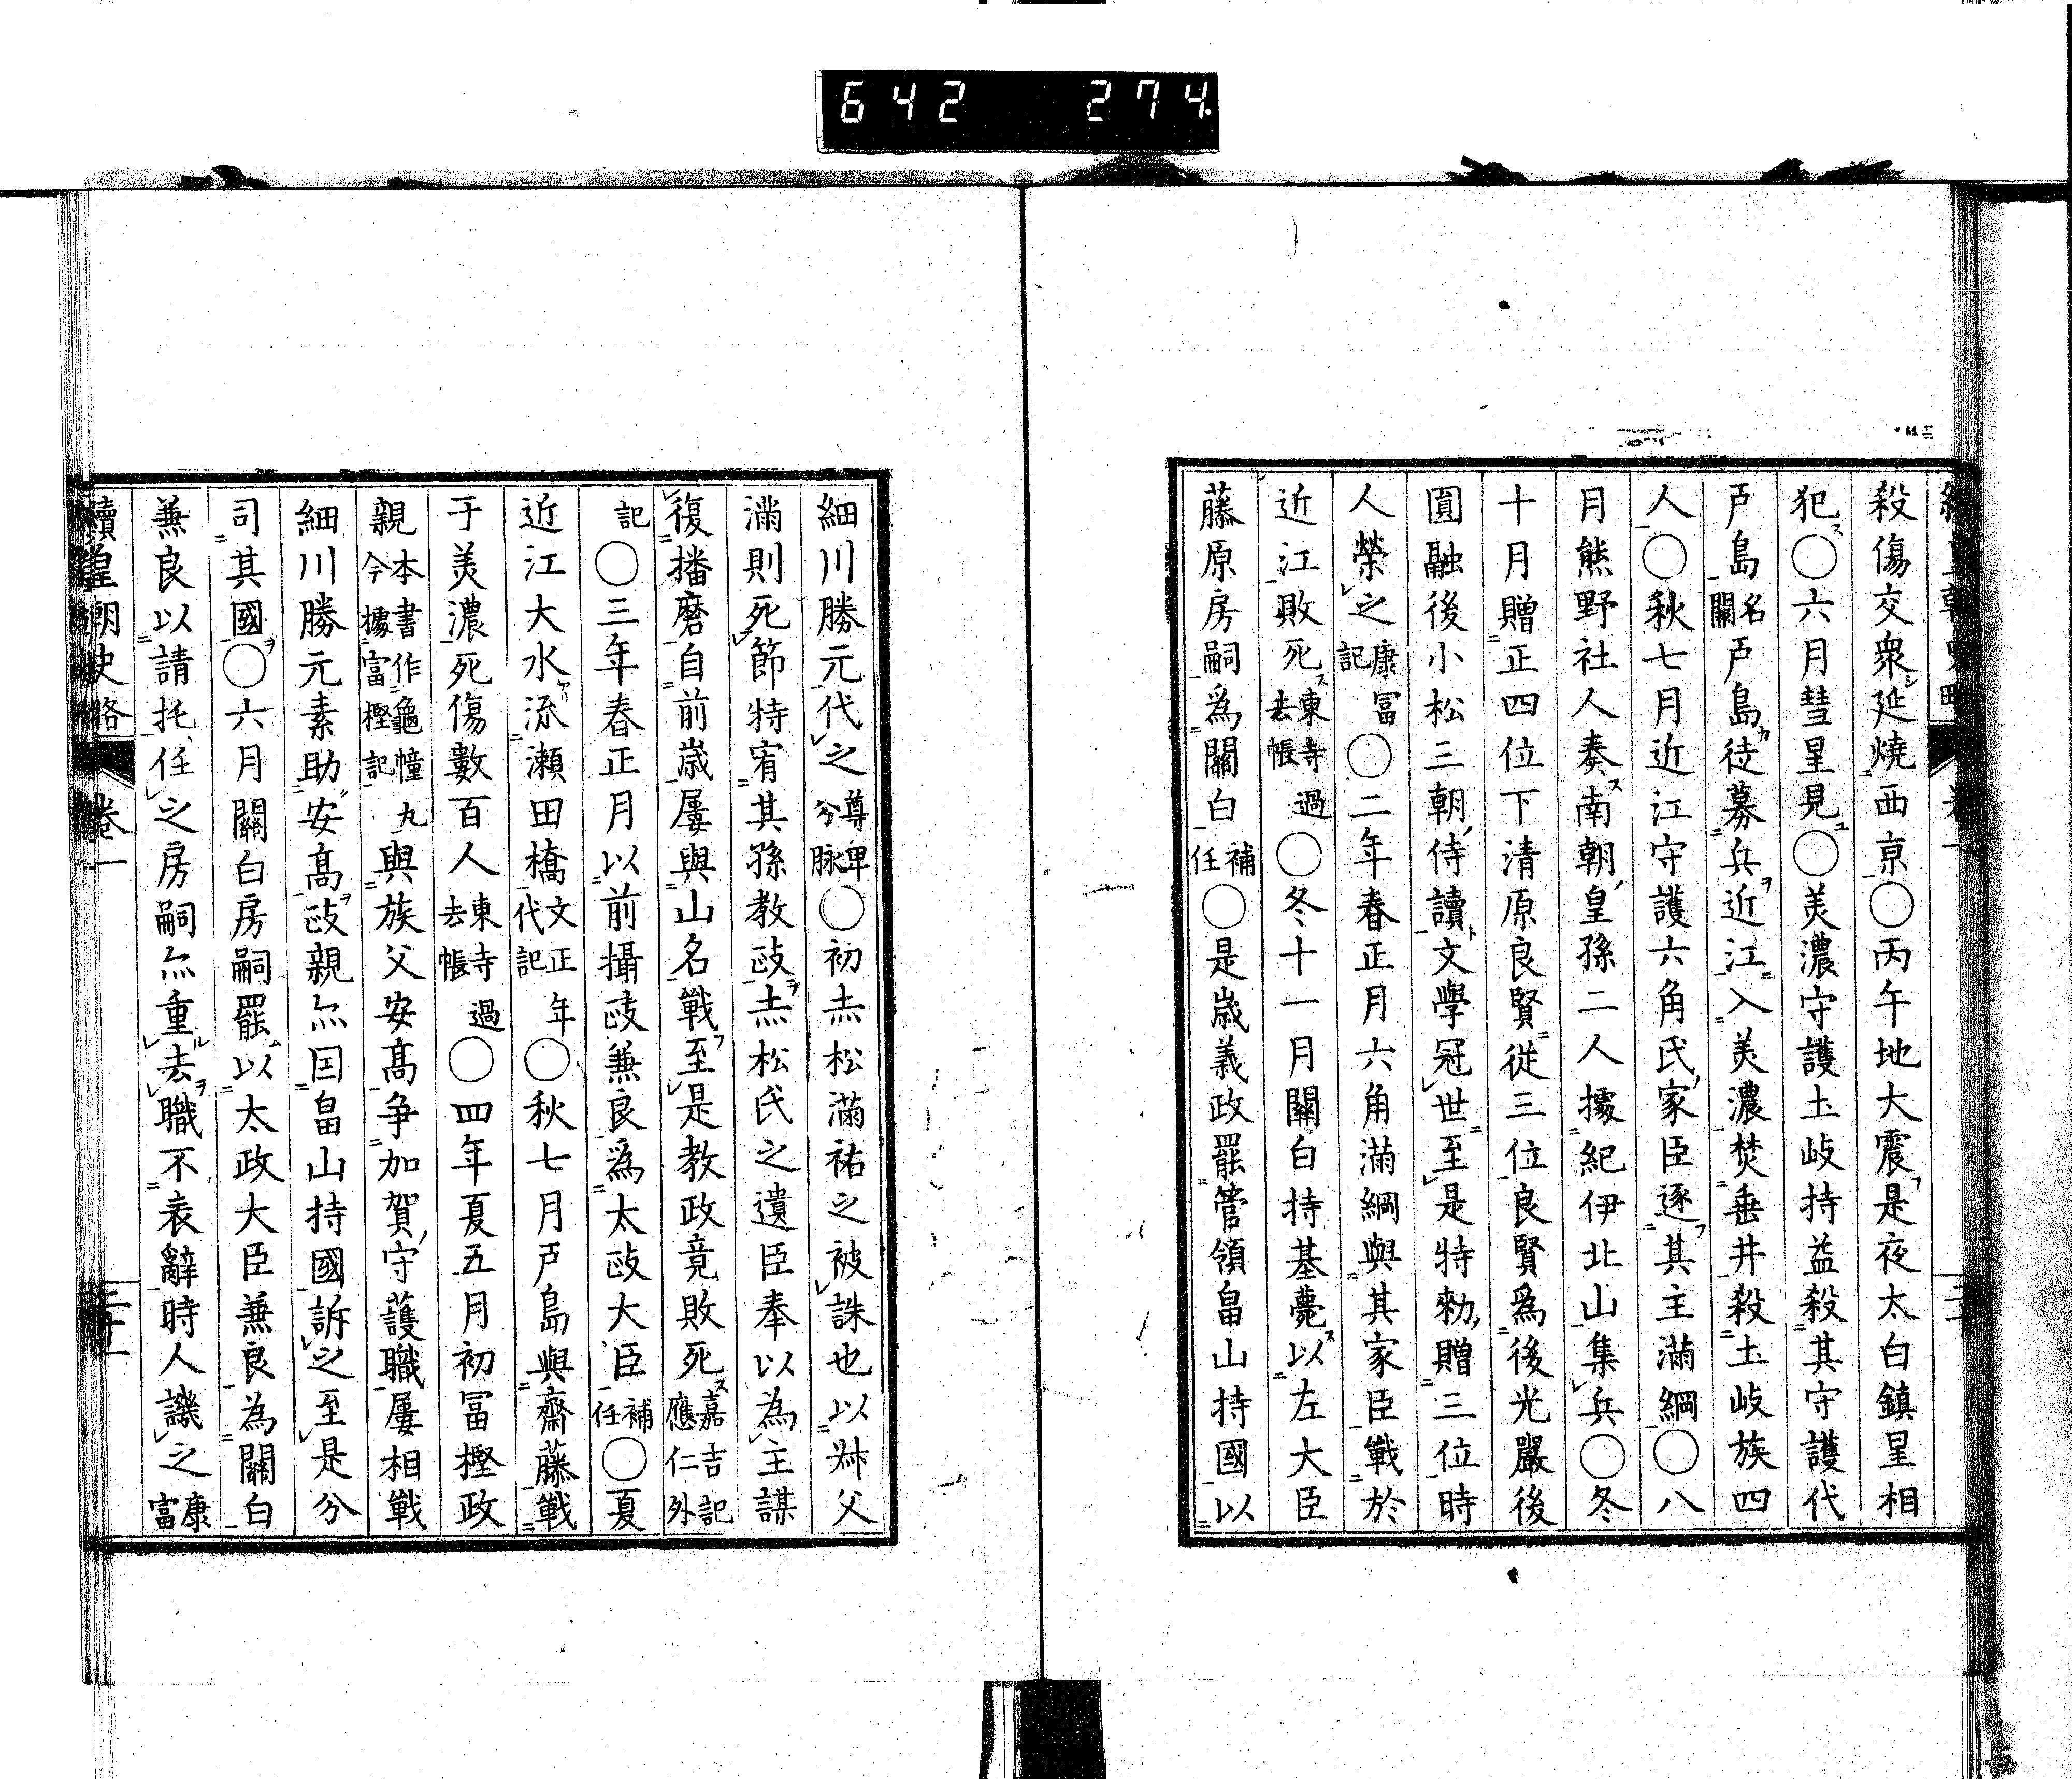 642 274
殺傷交衆延燒西京〇丙午地大震是夜太白鎮星相
犯〇六月彗星見〇美濃守護土岐持益殺其守護代
戸島名闕戸島徒募兵近江入美濃焚垂井殺土岐族四
人〇秋七月近江守護六角氏家臣逐其主滿綱〇八
月熊野社人奏南朝皇孫二人據紀伊北山集兵〇冬
十月贈正四位下清原良賢從三位良賢爲後光嚴後
圓融後小松三朝侍讀文學冠世至是特勅贈三位時
人榮之康冨記〇二年春正月六角滿綱與其家臣戰於
近江敗死東寺過去帳〇冬十一月關白持基薨以左大臣
藤原房嗣爲關白補任〇是歳義政罷管領畠山持國以
細川勝元代之尊卑分脉〇初赤松滿祐之被誅也以叔父
滿則死節特宥其孫教政赤松氏之遺臣奉以為主謀
復播磨自前歳屢與山名戰至是教政竟敗死嘉吉記應仁外
記〇三年春正月以前攝政兼良爲太政大臣補任〇夏
近江大水流瀬田橋文正年代記〇秋七月戸島與齋藤戰
于美濃死傷數百人東寺過去帳〇四年夏五月初冨樫政
親本書作龜幢丸今據富樫記與族父安高争加賀守護職屢相戰
細川勝元素助安高政親亦因畠山持國訴之至是分
司其國〇六月關白房嗣罷以太政大臣兼良為關白
兼良以請托任之房嗣亦重去職不表辭時人譏之康富
續皇朝史略 卷一 二十一